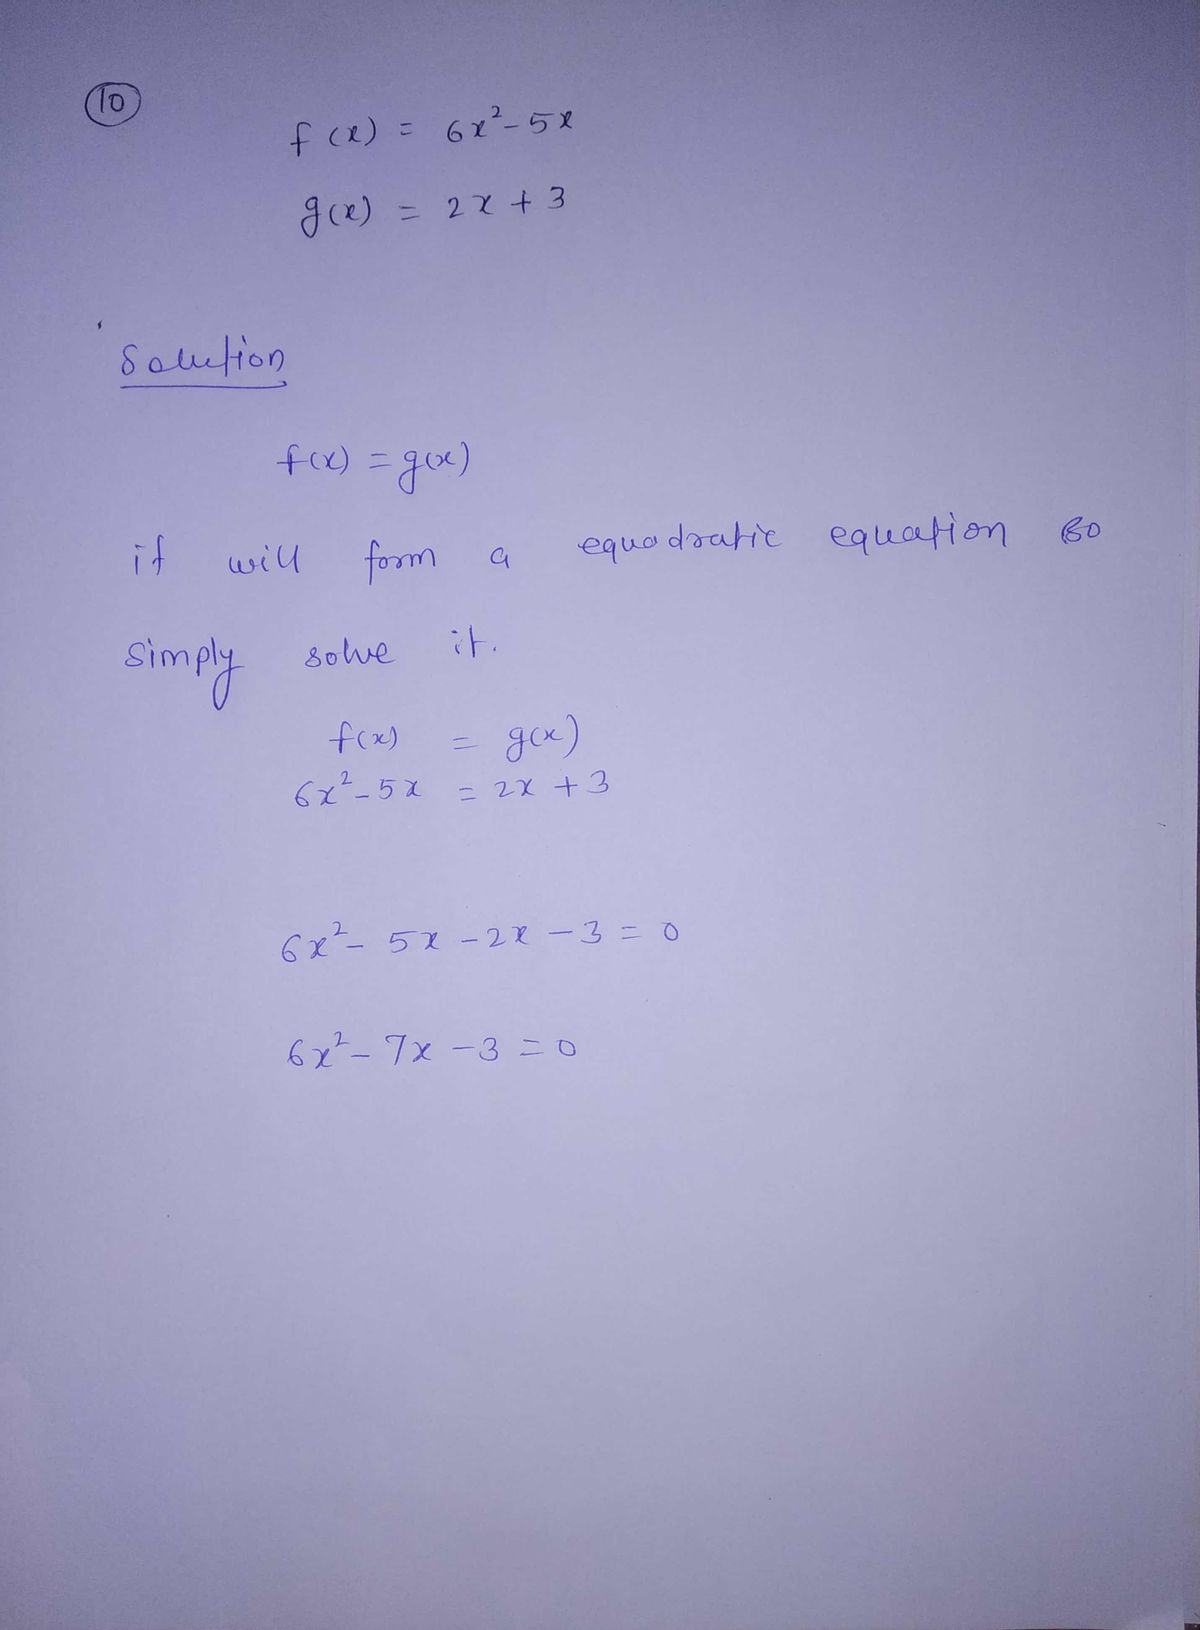 10
f(x) = 6x² - 5x
g(x) = 2x + 3
Solution
f(x) = g(x)
it will form a equadratic equation so
simply solve it.
f(x) = g(x)
6x² - 5x = 2x + 3
6x² - 5x - 2x - 3 = 0
6x² - 7x - 3 = 0